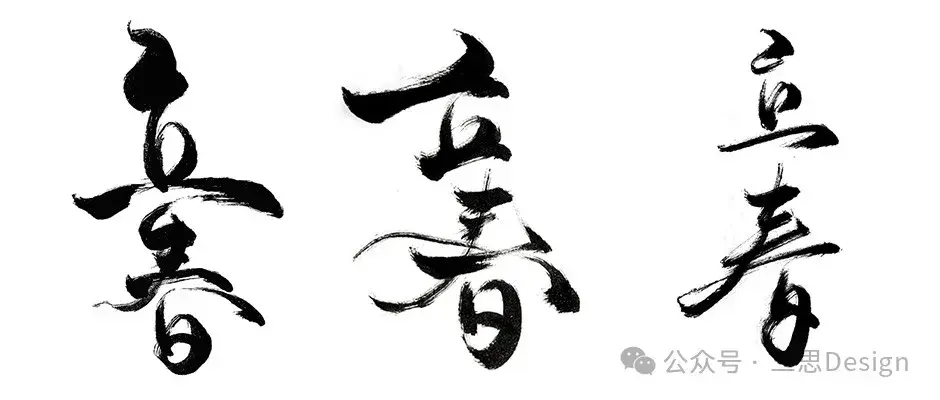 立春
立春
立春
公众号·三思Design